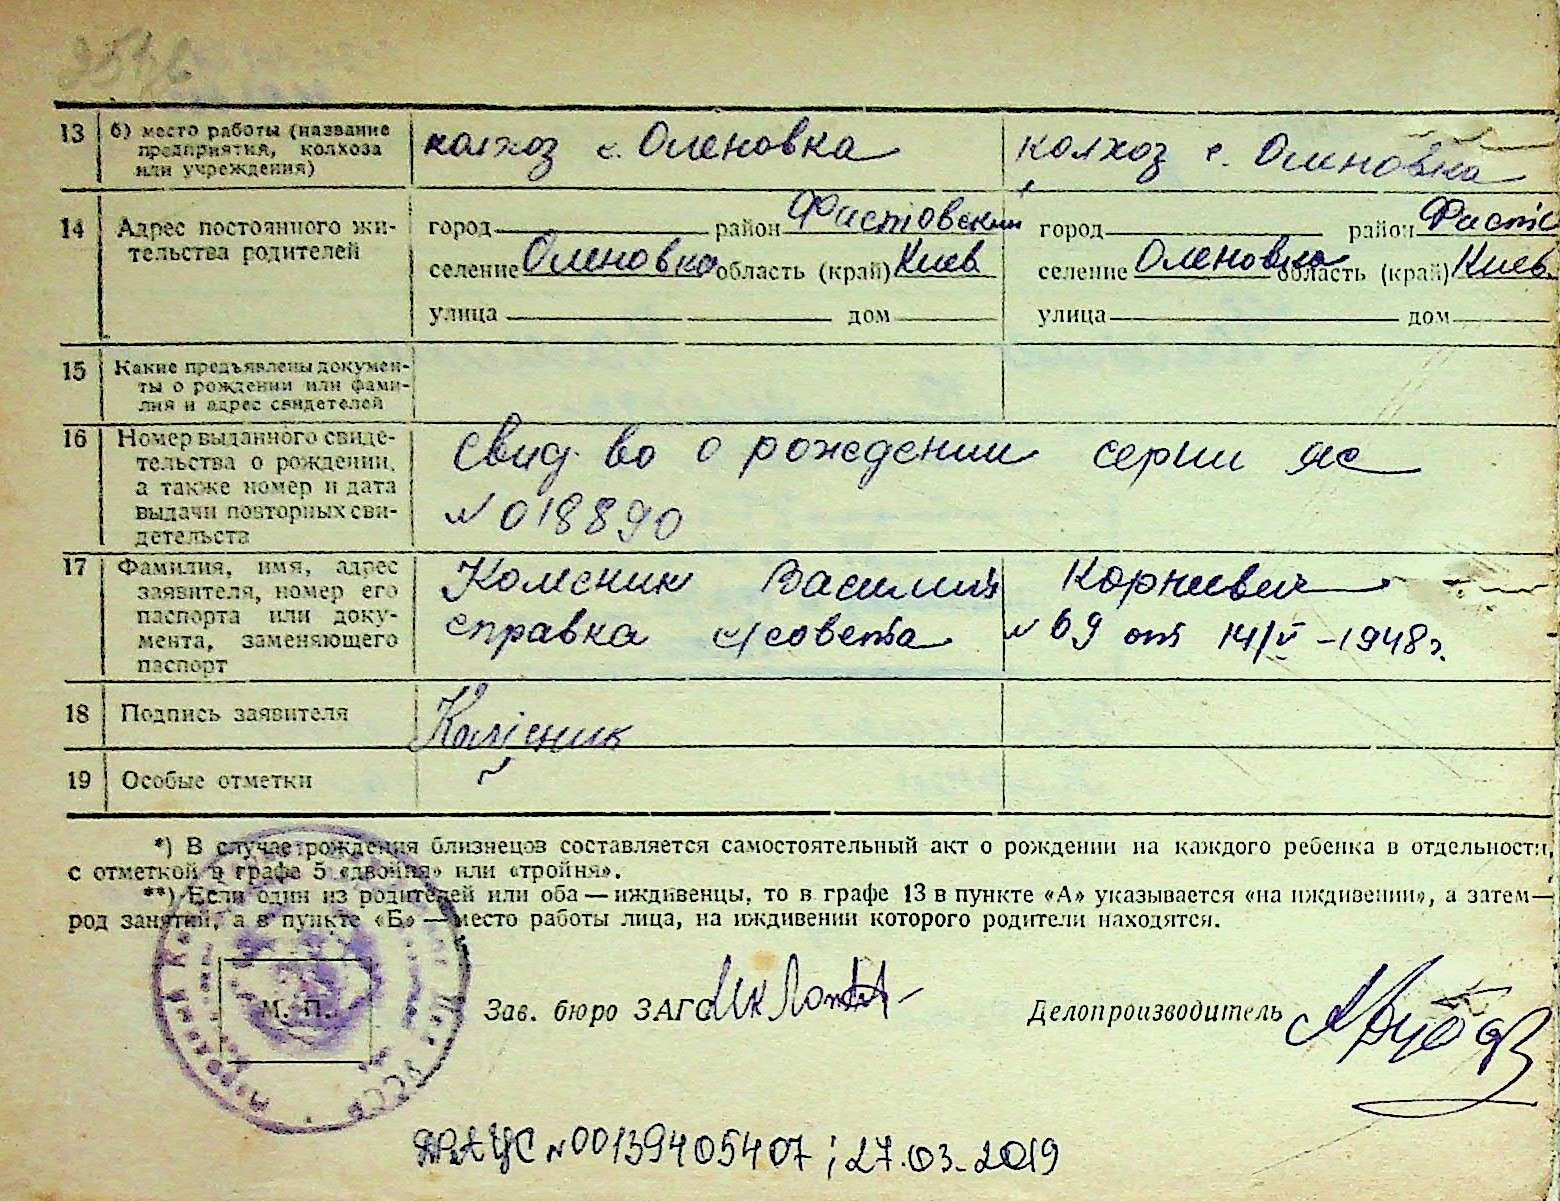 13 б) место работы (название предприятия, колхоза или учреждения) колхоз с. Оленовка колхоз с. Оленовка
14 Адрес постоянного жительства родителей
город район Фастовский город район Фастс
селение Оленовка область (край) Киев селение Оленовка область (край) Киев
улица дом улица дом
15 Какие предъявлены докумен-
ты о рождении или фами-
лия и адрес свидетелей
16 Номер выданного свиде-
тельства о рождении,
а также номер и дата
выдачи повторных сви-
детельств
Свид-во о рождении серии ЯС
№ 018890
17 Фамилия, имя, адрес
заявителя, номер его
паспорта или доку-
мента, заменяющего
паспорт
Колесник Василий Корнеевич
справка с/совета № 69 от 14/V-1948г.
18 Подпись заявителя Колісник
19 Особые отметки
*) В случае рождения близнецов составляется самостоятельный акт о рождении на каждого ребенка в отдельности,
с отметкой в графе 5 «двойня» или «тройня».
**) Если один из родителей или оба — иждивенцы, то в графе 13 в пункте «А» указывается «на иждивении», а затем —
род занятий, а в пункте «Б» — место работы лица, на иждивении которого родители находятся.
М. П.
Зав. бюро ЗАГС
Делопроизводитель
УССР
ДРАЦС №00139405407; 27.03.2019